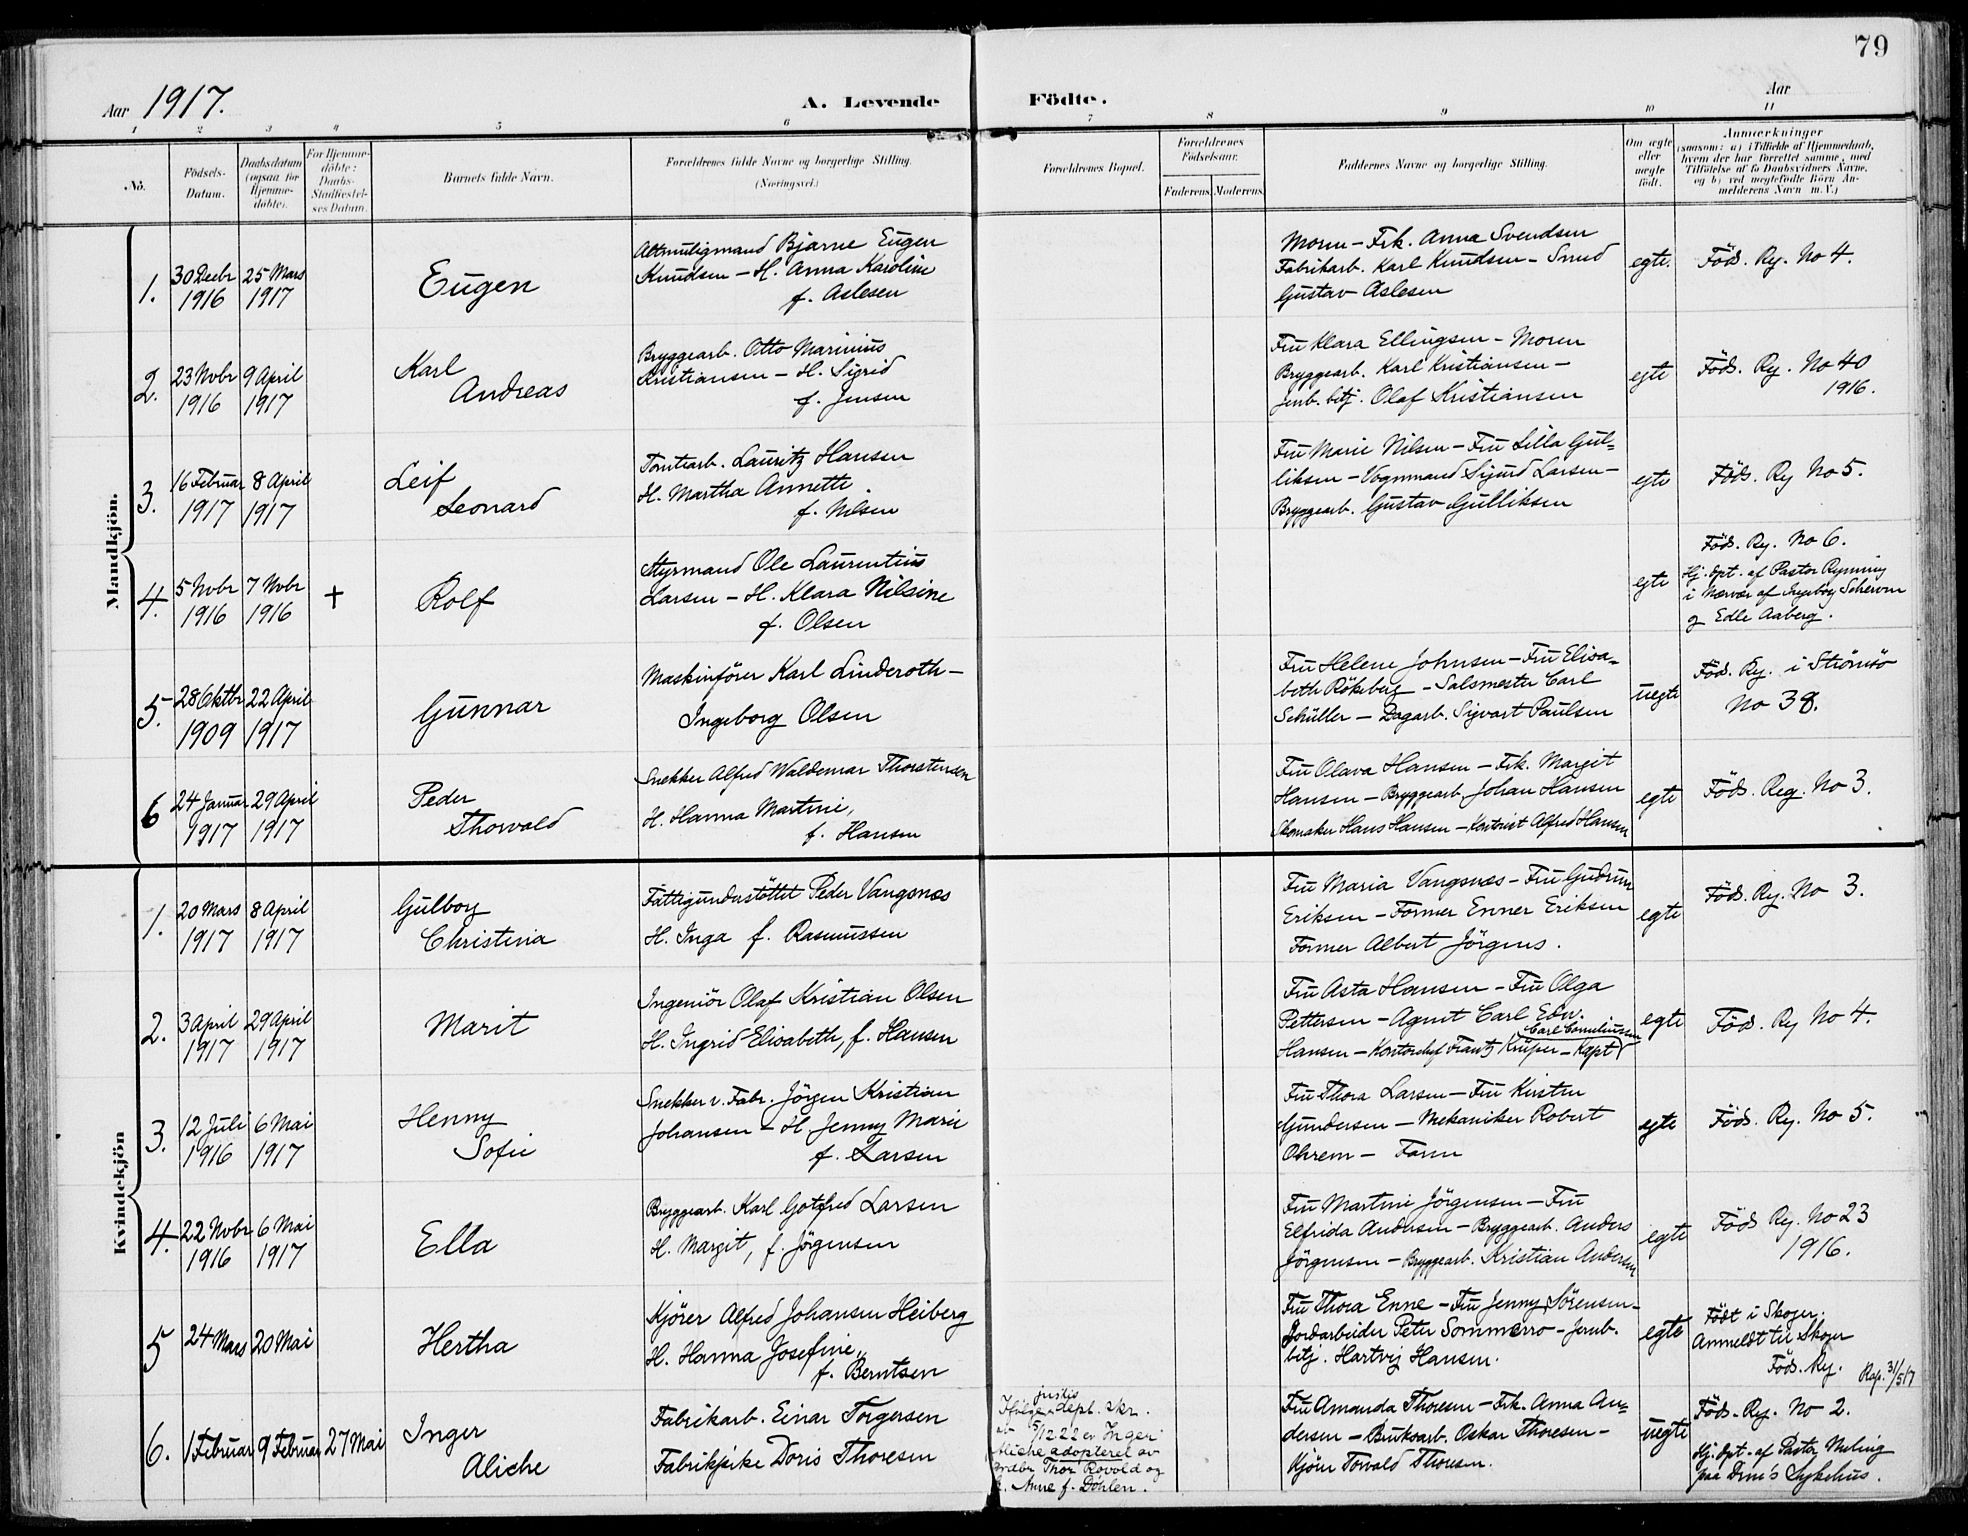 79
Aar 1917. A. Levende Födte. Aar
1 2 3 4 5 6 7 8 9 10 11
No.
Födsels-
Datum.
Daabsdatum
(ogsaa for
Hjemme-
döbte).
For Hjemme-
döbte:
Daabs-
Stadfæstel-
ses Datum.
Barnets fulde Navn.
Forældrenes fulde Navne og borgerlige Stilling.
(Næringsvei.)
Forældrenes Bopæl.
Forældrenes
Födselsaar.
Faderens. Moderens.
Faddernes Navne og borgerlige Stilling.
Om ægte
eller
uægte
født.
Anmærkninger
(saasom: a) i Tilfælde af Hjemmedaab,
hvem der har forrettet samme, med
Tilföielse af to Daabsvidners Navne,
og b) ved uægtefödte Börn An-
melderens Navn m. V.)
Mandkjön.
1.
30 Decbr
1916
25 Mars
1917
Eugen
Altmuligmand Bjarne Eugen
Knudsen - H. Anna Karoline
f. Aslesen
Moren - Frk. Anna Svendsen
Fabrikarb. Karl Knudsen - Smed
Gustav Aslesen
egte.
Föds. Rg. No 4.
2.
23 Nvbr
1916
9 April
1917
Karl
Andreas
Bryggearb. Otto Marinius
Kristiansen - H. Sigrid
f. Jensen
Fru Klara Ellingsen - Moren
Bryggearb. Karl Kristiansen -
Jernb. bitj. Olaf Kristiansen
egte
Föds. Rg. No 40
1916.
3.
16 Februar
1917
8 April
1917
Leif
Leonard
Tomtearb. Lauritz Hansen
H. Martha Annette
f. Nilsen
Fru Marie Nilsen - Fru Lilla Gul=
liksen - Vognmand Sigurd Larsen -
Bryggearb. Gustav Gulliksen
egte
Föds. Rg No 5.
4.
5 Nvbr
1916
7 Nvbr
1916
+
Rolf
Styrmand Ole Laurentius
Larsen - H. Klara Nilsine
f. Olsen
egte
Föds. Rg. No 6.
Hj. dpt. af Pastor Rynning
i Nærvær af Ingeborg
og Edle Aaberg.
5.
28 Oktbr
1909
22 April
1917
Gunnar
Maskinfører Karl Linderoth -
Ingeborg Olsen
Fru Helene Johnsen - Fru Elisa=
beth Rökeberg - Salsmester Carl
Schüller - Dagarb. Sigvart Paulsen
uegte
Föd. Rg. i Strömsö
No 38.
6
24 Januar
1917
29 April
1917
Peder
Thorvald
Snekker Alfred Waldemar Thorstensen
H. Hanna Martine,
f. Hansen
Fru Olava Hansen - Frk. Margit
Hansen - Bryggearb. Johan Hansen
Skomaker Hans Hansen - Kontorist Alfred Hansen
egte
Föds. Reg. No 3.
Kvindekjön
1.
20 Mars
1917
8 April
1917
Gulborg
Christina
Fattigunderstöttet Peder Vangsnes
H. Inga f. Rasmussen
Fru Maria Vangsnes - Fru Gudrun
Eriksen - Former Enner Eriksen
Former Albert Jörgens.
egte
Föds. Rg. No 3.
2.
3 April
1917
29 April
1917
Marit
Ingeniör Olaf Kristian Olsen
H. Ingrid Elisabeth, f. Hansen
Fru Asta Hansen - Fru Olga
Pettersen - Agent Carl Edw.
Carl Corneliussen
Hansen - Kontorchef Frantz Krüper - Kapt
egte
Föds. Rg No 4.
3.
12 Juli
1916
6 Mai
1917
Henny
Sofie
Snekker v. Fabr. Jörgen Kristian
Johansen - H. Jenny Marie
f. Larsen
Fru Thora Larsen - Fru Kirsten
Gundersen - Mekaniker Robert
Ohrem - Faren
egte
Föds. Rg. No 5.
4.
22 Nvbr
1916
6 Mai
1917
Ella
Bryggearb. Karl Gotfred Larsen
H. Margit, f. Jörgensen
Fru Martine Jörgensen - Fru
Elfrida Andersen - Bryggearb. Anders
Jörgensen - Bryggearb. Kristian Andersen
egte
Föds Rg. No 23
1916.
5
24 Mars
20 Mai
Hertha
Kjörer Alfred Johansen Heiberg
H. Hanna Josefine,
f. Berntsen
Fru Thora Enne - Fru Jenny Sörensen -
Jordarbeider Peter Sommerro - Jernb.
bitj. Hartvig Hansen.
egte
Födt i Skoger.
Anmeldt til Skoger
Föds. Rg.
Rap. 31/5 17
6.
1 Februar
9 Februar
27 Mai
Inger
Aliche
Fabrikarb. Einar Torgersen
Fabrikpike Doris Thoresen
justis
Ifölge dept. skr.
av 5/12 22 er Inger
Aliche adopteret av
Thor Rovold og
H. Anne f. Döhlen.
Fru Amanda Thoresen - Frk. Anna An=
dersen - Bruksarb. Oskar Thoresen -
Kjörer Torvald Thoresen.
uegte
Föds. Rg. No 2.
Hj. dpt. af Pastor
paa Drm's Sykehus.